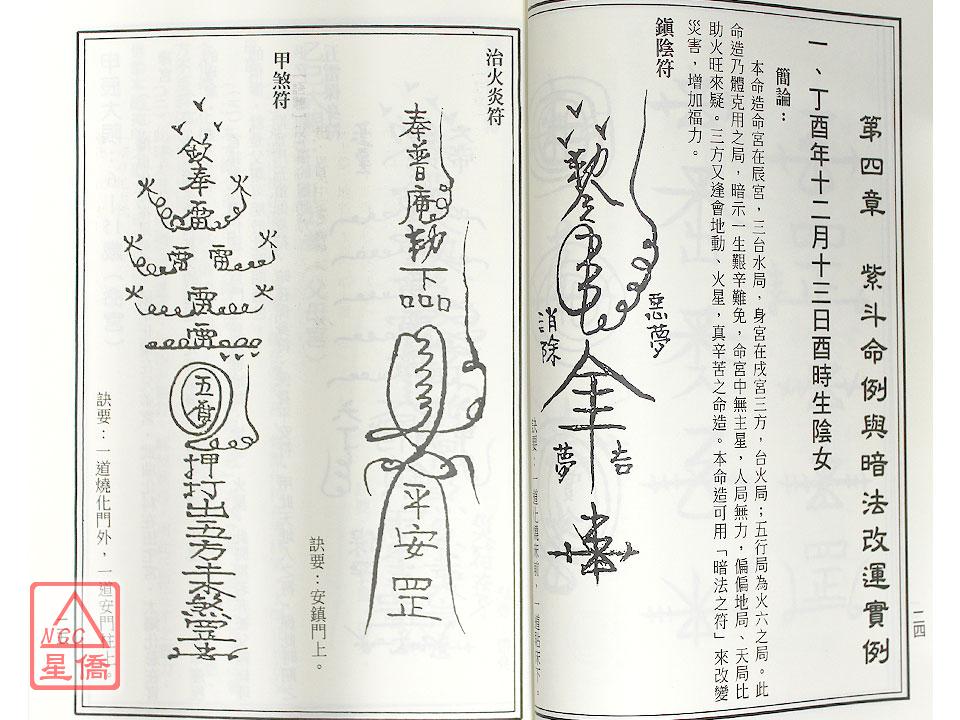 第四章　紫斗命例與暗法改運實例
一、丁酉年十二月十三日酉時生陰女
簡論：
本命造命宮在辰宮，三台水局，身宮在戌宮三方，台火局；五行局為火六之局。此
命造乃體克用之局，暗示一生艱辛難免，命宮中無主星，人局無力，偏偏地局、天局比
助火旺來疑。三方又逢會地動、火星，真辛苦之命造。本命造可用「暗法之符」來改變
災害，增加福力。
鎮陰符
惡夢
消除
吉
夢
二四
治火炎符
奉普庵勅下
平安罡
訣要：安鎮門上。
甲煞符
欽奉雷
火 火
雷 雷
火 火
雷
火 火
雷
五
押打出五方
煞罡
訣要：一道燒化門外，一道安門
NCC
星僑